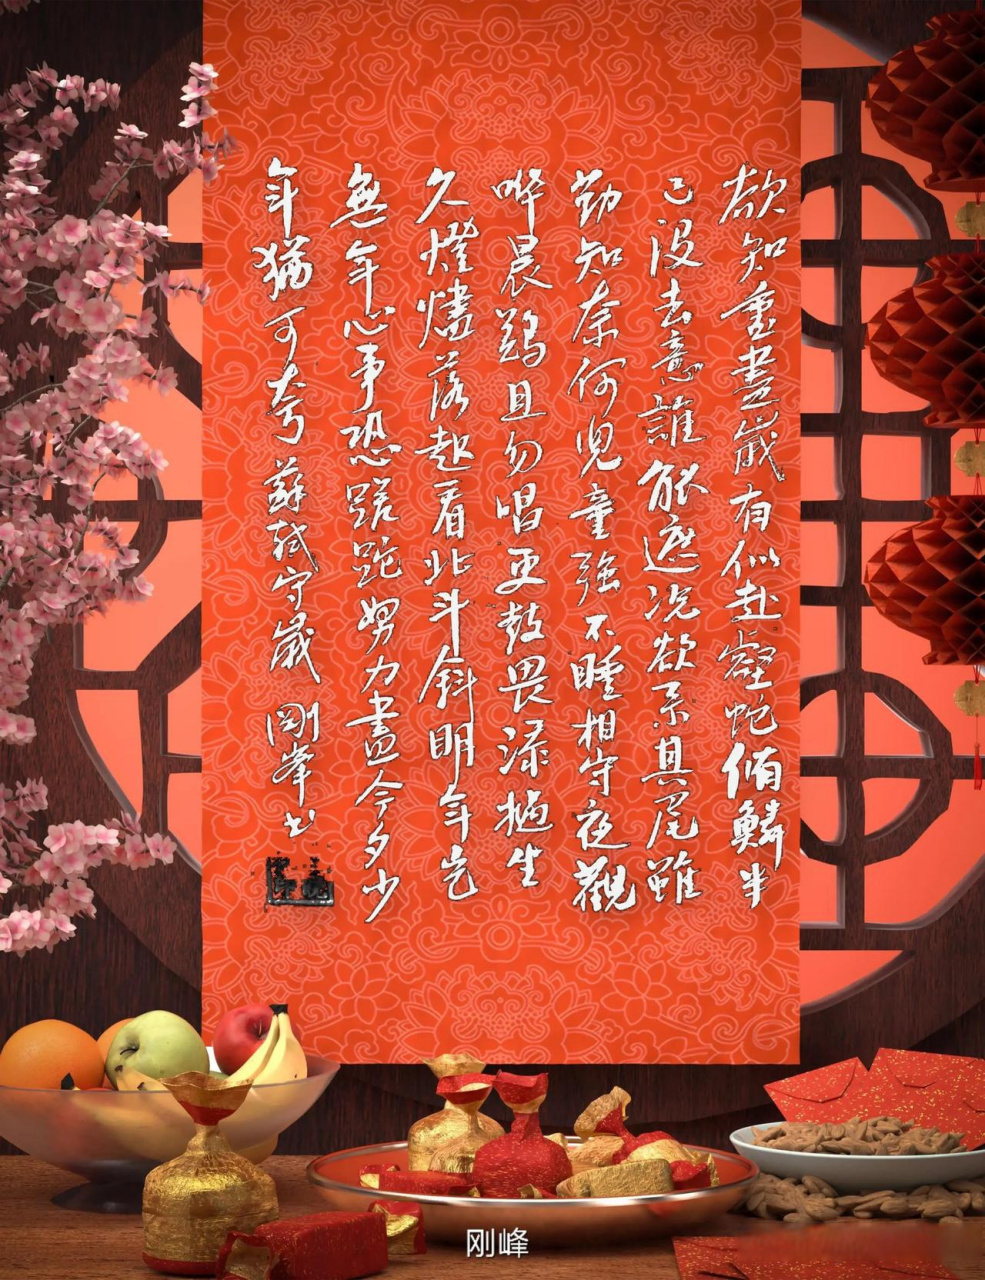 欲知垂盡歲有似赴壑蛇脩鱗半
已沒去意誰能遮况欲系其尾雖
勤知奈何兒童強不睡相守夜觀
嘩晨鷄且勿唱更鼓畏添撾生
久燈燼落起看北斗斜明年豈
無年心事恐蹉跎努力盡今夕少
年猶可夸蘇軾守歲 剛峯书
刚峰